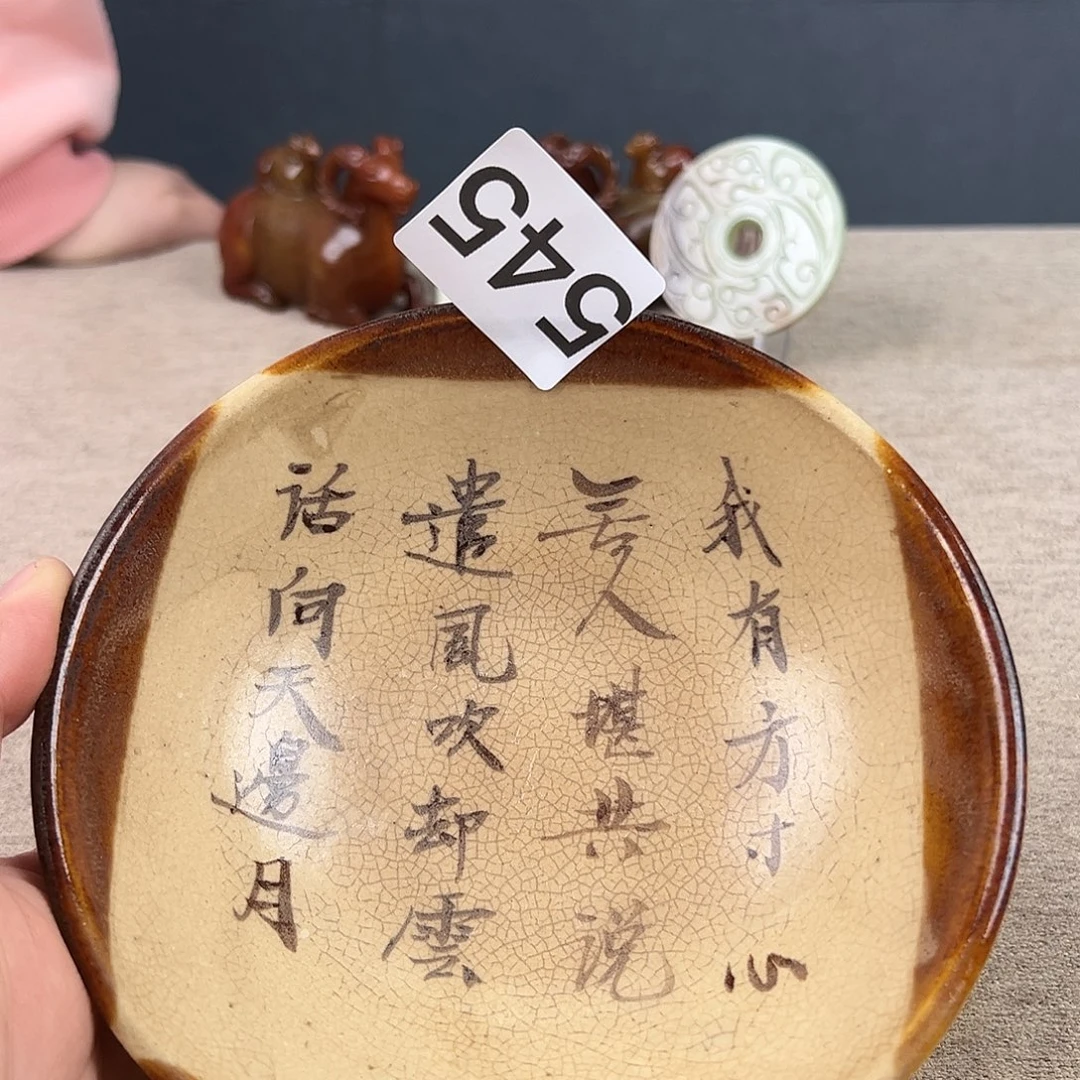 545
我有方寸心
無人堪共説
遣風吹却雲
話向天邊月